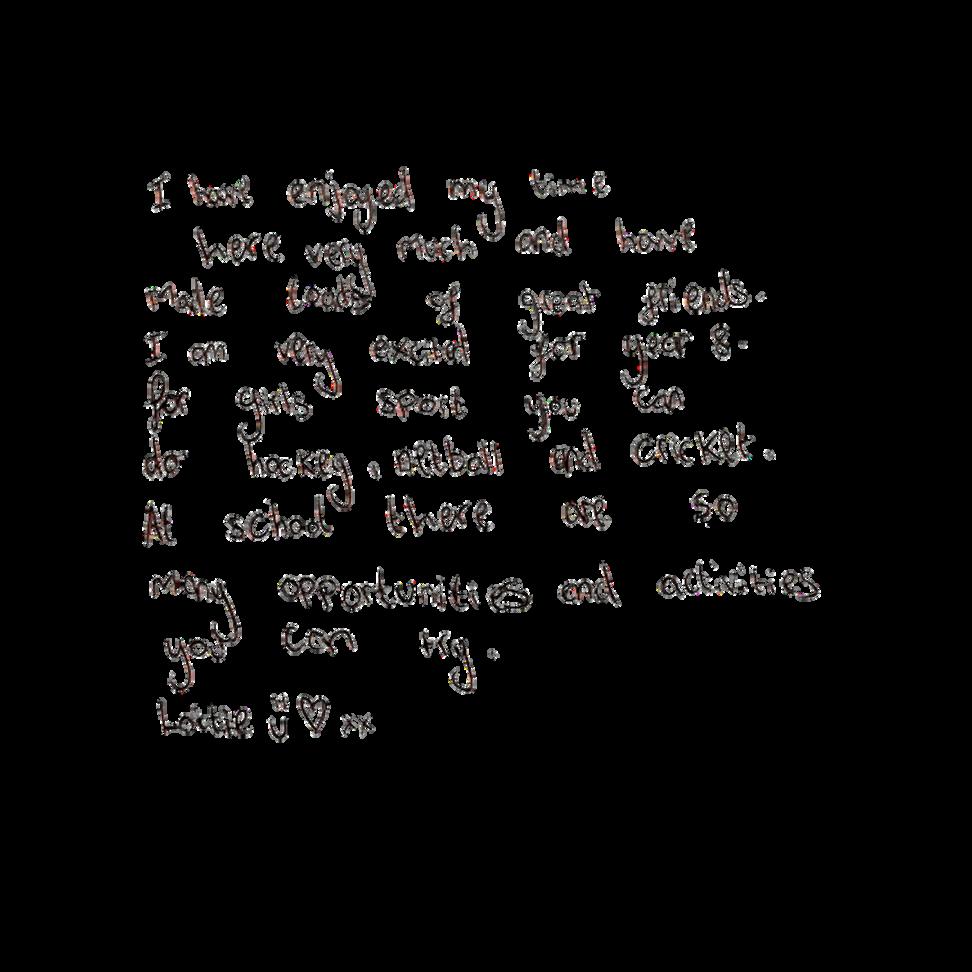 I have enjoyed my time
here very much and have
made loads of great friends.
I am very excited for year 8.
for girls sport you can
do hockey, netball and cricket.
At school there are so
many opportunities and activities
you can try.
Lottie ü♡xx